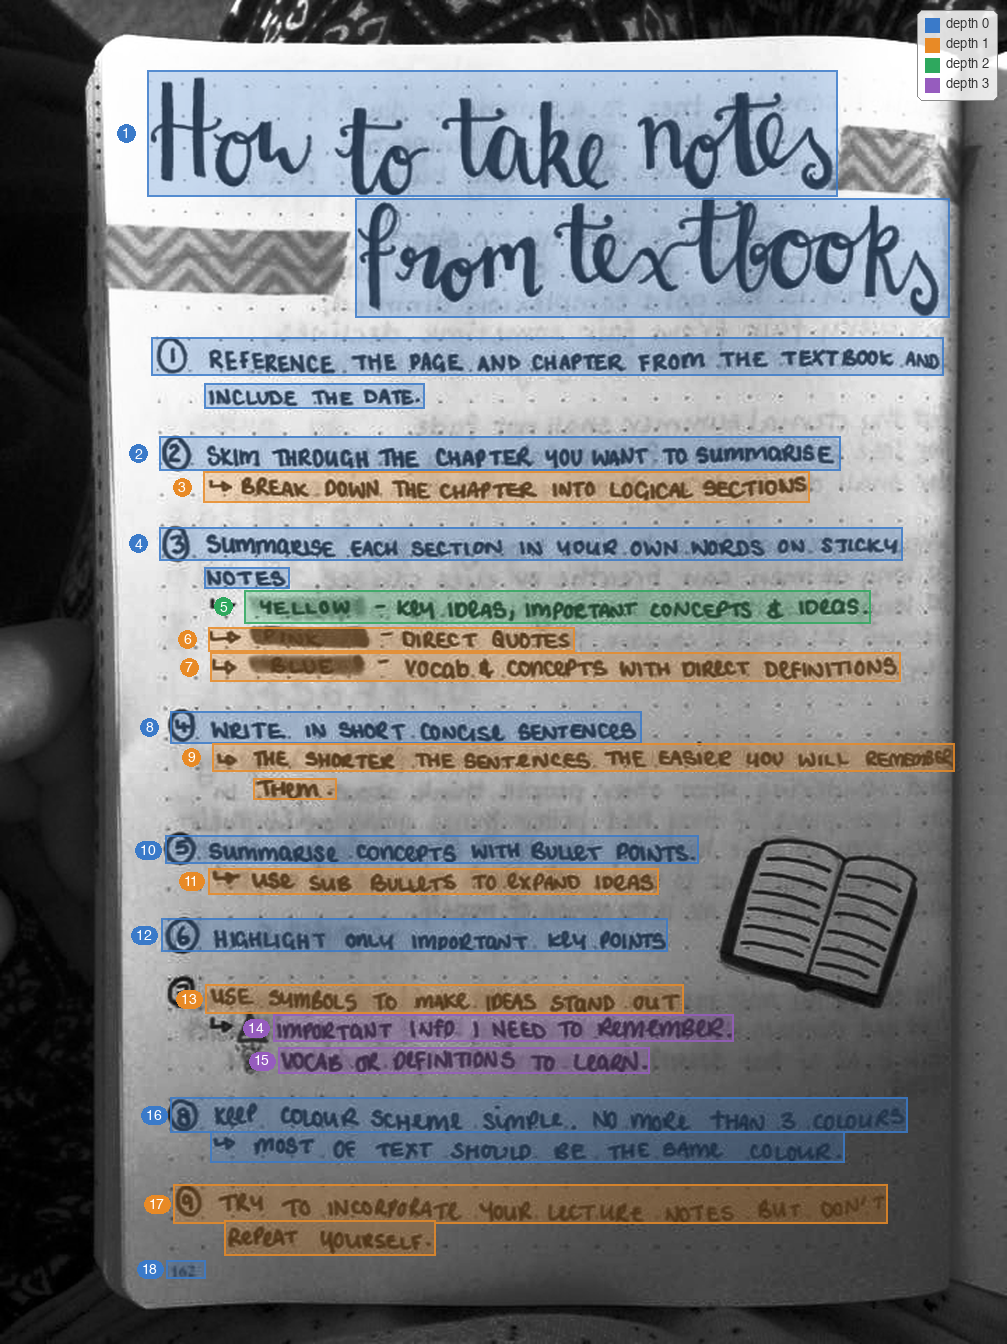 How to take notes
from textbooks
① REFERENCE THE PAGE AND CHAPTER FROM THE TEXTBOOK AND
INCLUDE THE DATE.
② SKIM THROUGH THE CHAPTER YOU WANT TO SUMMARISE
↳ BREAK DOWN THE CHAPTER INTO LOGICAL SECTIONS
③ SUMMARISE EACH SECTION IN YOUR OWN WORDS ON STICKY
NOTES
↳ YELLOW - KEY IDEAS, IMPORTANT CONCEPTS & IDEAS.
↳ PINK - DIRECT QUOTES
↳ BLUE - VOCAB & CONCEPTS WITH DIRECT DEFINITIONS
④ WRITE IN SHORT CONCISE SENTENCES
↳ THE SHORTER THE SENTENCES THE EASIER YOU WILL REMEMBER
THEM.
⑤ SUMMARISE CONCEPTS WITH BULLET POINTS.
↳ USE SUB BULLETS TO EXPAND IDEAS
⑥ HIGHLIGHT ONLY IMPORTANT KEY POINTS
⑦ USE SYMBOLS TO MAKE IDEAS STAND OUT
↳ IMPORTANT INFO I NEED TO REMEMBER.
VOCAB OR DEFINITIONS TO LEARN.
⑧ KEEP COLOUR SCHEME SIMPLE. NO MORE THAN 3 COLOURS
↳ MOST OF TEXT SHOULD BE THE SAME COLOUR.
⑨ TRY TO INCORPORATE YOUR LECTURE NOTES BUT DON'T
REPEAT YOURSELF.
162
depth 0
depth 1
depth 2
depth 3
1
2
3
4
5
6
7
8
9
10
11
12
13
14
15
16
17
18